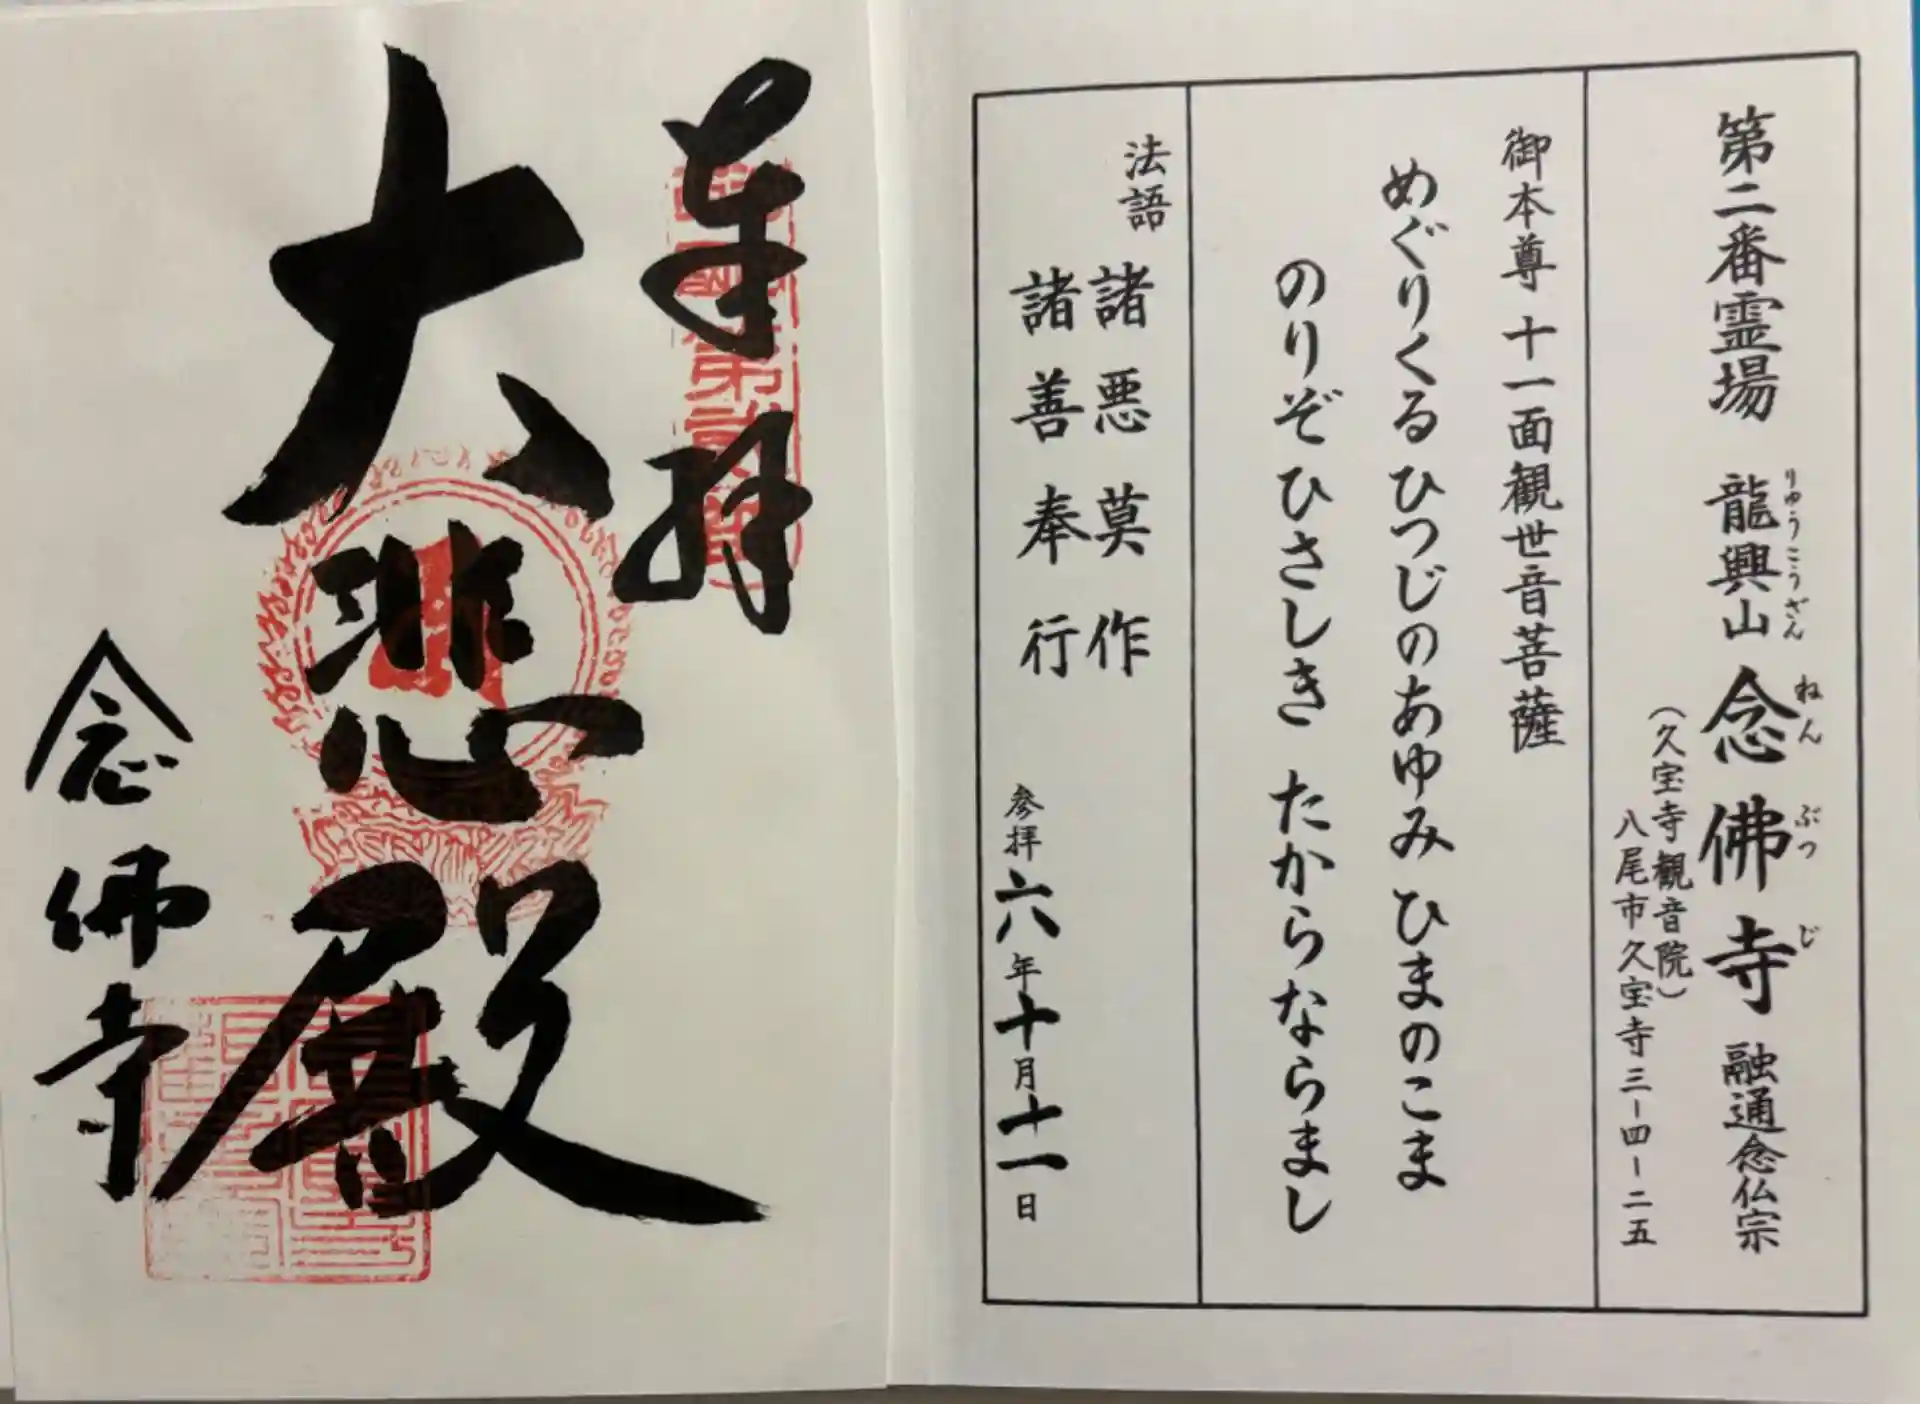 第二番霊場 龍興山 念佛寺 融通念仏宗
りゅうこうざん ねんぶつじ
(久宝寺観音院)
八尾市久宝寺三-四-二五
御本尊 十一面観世音菩薩
めぐりくる ひつじのあゆみ ひまのこま
のりぞ ひさしき たからならまし
法語
諸悪莫作
諸善奉行
参拝 六年十月十一日
奉拝
大悲殿
念佛寺